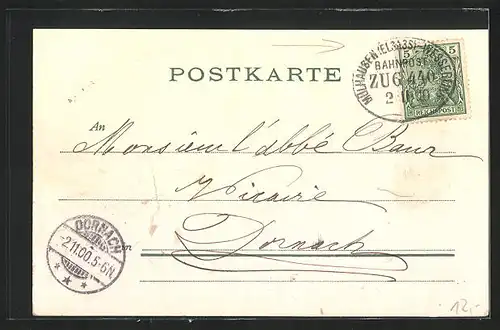 MÜLHAUSEN (ELSASS)-WESSERLING
BAHNPOST
ZUG 440
5 5
REICHSPOST
POSTKARTE
An
Monsieur l'abbé Baur
Vicaire
Dornach
DORNACH
-2.11.00.5-6N.
12,-